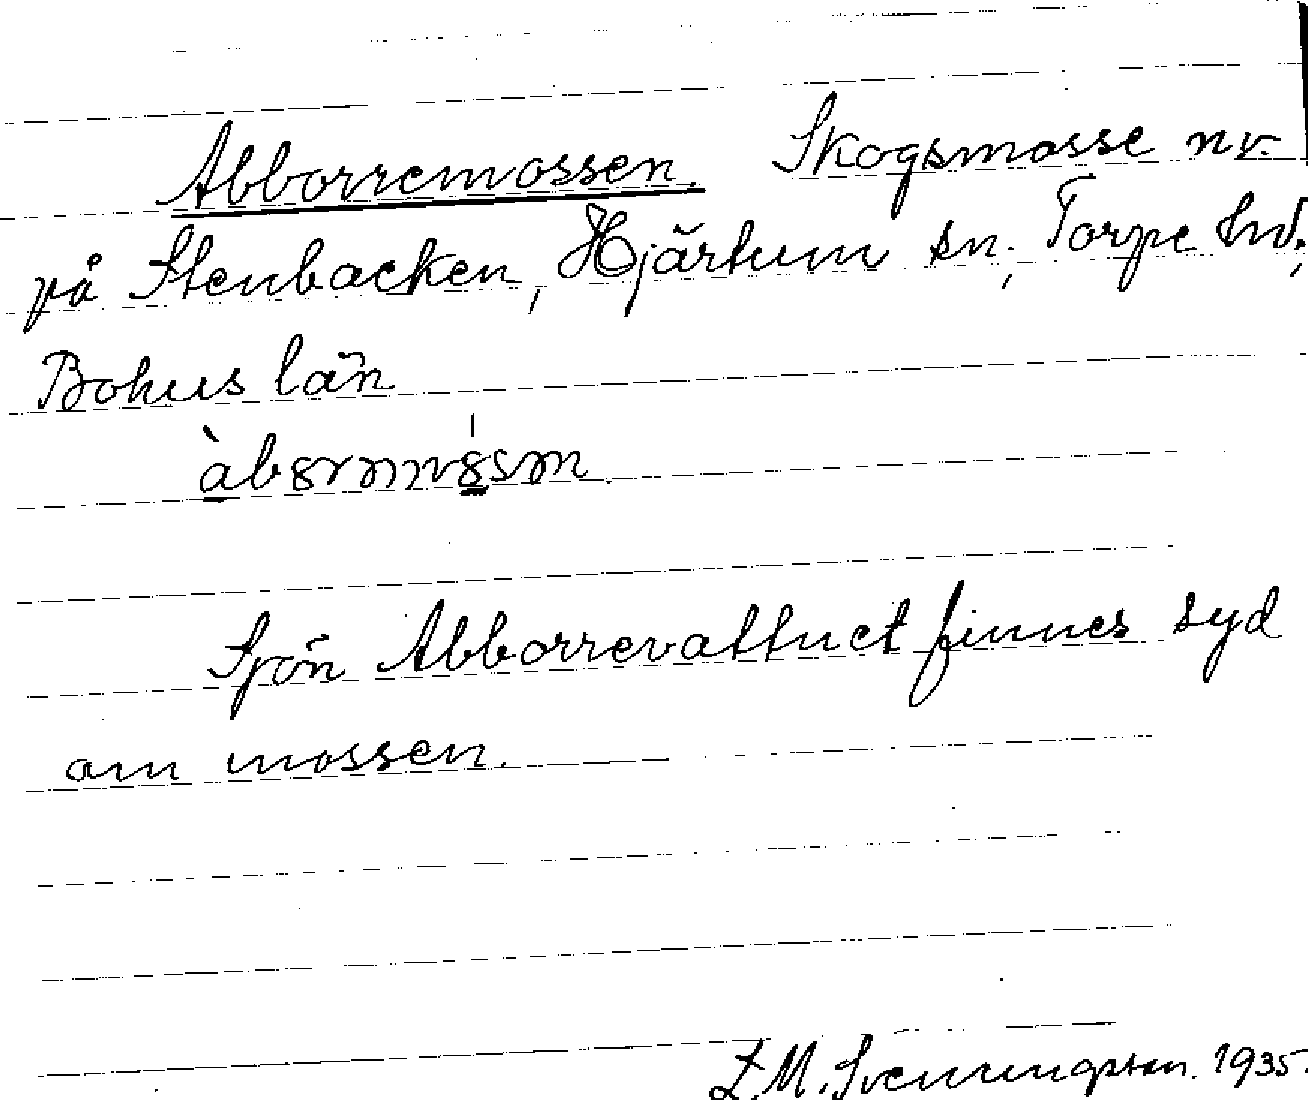 Abborremossen. Skogsmosse nv.
på Stenbacken, Hjärtum sn, Torpe hd,
Bohus län
Sjön Abborrevattnet finnes syd
om mossen.
L.M. Svenningsson. 1935.